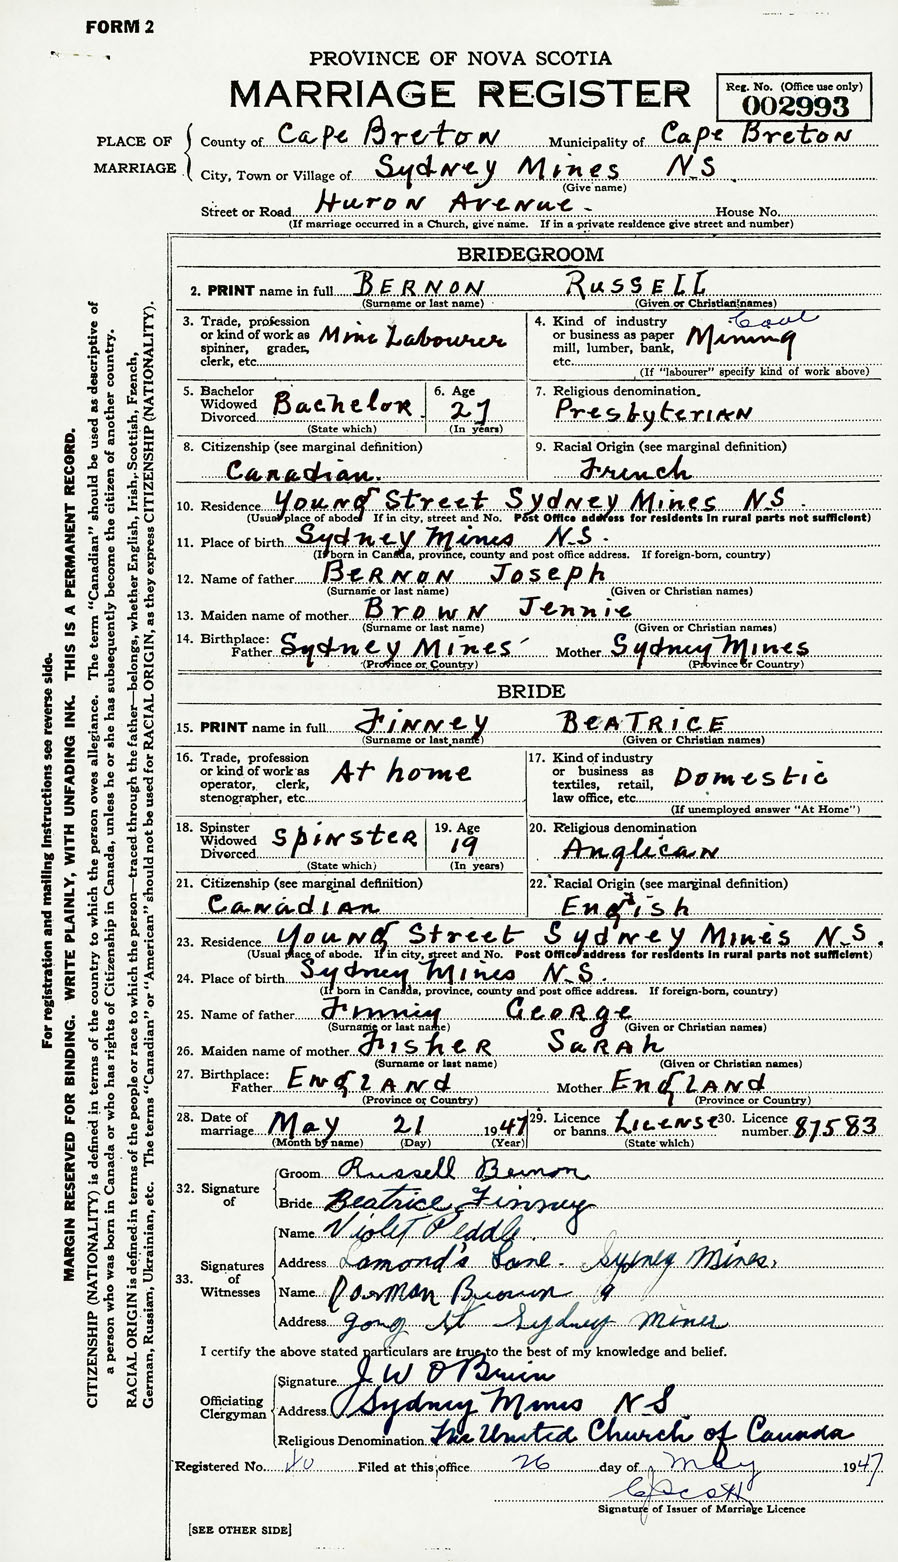 FORM 2
PROVINCE OF NOVA SCOTIA
MARRIAGE REGISTER
Reg. No. (Office use only)
002993
PLACE OF MARRIAGE
County of Cape Breton Municipality of Cape Breton
City, Town or Village of Sydney Mines N S.
(Give name)
Street or Road Huron Avenue. House No.
(If marriage occurred in a Church, give name. If in a private residence give street and number)
BRIDEGROOM
2. PRINT name in full BERNON RUSSELL
(Surname or last name) (Given or Christian names)
3. Trade, profession or kind of work as spinner, grader, clerk, etc. Mine Labourer
4. Kind of industry or business as paper mill, lumber, bank, etc. Coal Mining
(If "labourer" specify kind of work above)
5. Bachelor Widowed Divorced Bachelor.
(State which)
6. Age 27
(In years)
7. Religious denomination. Presbyterian
8. Citizenship (see marginal definition)
Canadian.
9. Racial Origin (see marginal definition)
French
10. Residence Young Street Sydney Mines N S
(Usual place of abode. If in city, street and No. Post Office address for residents in rural parts not sufficient)
11. Place of birth Sydney Mines N S.
(If born in Canada, province, county and post office address. If foreign-born, country)
12. Name of father Bernon Joseph
(Surname or last name) (Given or Christian names)
13. Maiden name of mother Brown Jennie
(Surname or last name) (Given or Christian names)
14. Birthplace: Father Sydney Mines Mother Sydney Mines
(Province or Country) (Province or Country)
BRIDE
15. PRINT name in full Finney Beatrice
(Surname or last name) (Given or Christian names)
16. Trade, profession or kind of work as operator, clerk, stenographer, etc. At home
17. Kind of industry or business as textiles, retail, law office, etc. Domestic
(If unemployed answer "At Home")
18. Spinster Widowed Divorced Spinster
(State which)
19. Age 19
(In years)
20. Religious denomination
Anglican
21. Citizenship (see marginal definition)
Canadian
22. Racial Origin (see marginal definition)
English
23. Residence Young Street Sydney Mines N S.
(Usual place of abode. If in city, street and No. Post Office address for residents in rural parts not sufficient)
24. Place of birth Sydney Mines N S.
(If born in Canada, province, county and post office address. If foreign-born, country)
25. Name of father Finney George
(Surname or last name) (Given or Christian names)
26. Maiden name of mother Fisher Sarah
(Surname or last name) (Given or Christian names)
27. Birthplace: Father England Mother England
(Province or Country) (Province or Country)
28. Date of marriage May 21 1947
(Month by name) (Day) (Year)
29. Licence or banns License
(State which)
30. Licence number 87583
32. Signature of
Groom Russell Bernon
Bride Beatrice Finney
33. Signatures of Witnesses
Name Violet Peddle.
Address Lamond's Lane. Sydney Mines.
Name Dorman Brown
Address Yong St Sydney Mines
I certify the above stated particulars are true to the best of my knowledge and belief.
Officiating Clergyman
Signature J W O'Brien
Address Sydney Mines N S.
Religious Denomination The United Church of Canada
Registered No. 40 Filed at this office 26 day of May 1947
Signature of Issuer of Marriage Licence
[SEE OTHER SIDE]
For registration and mailing instructions see reverse side.
MARGIN RESERVED FOR BINDING. WRITE PLAINLY, WITH UNFADING INK. THIS IS A PERMANENT RECORD.
CITIZENSHIP (NATIONALITY) is defined in terms of the country to which the person owes allegiance. The term "Canadian" should be used as descriptive of
a person who was born in Canada or who has rights of Citizenship in Canada, unless he or she has subsequently become the citizen of another country.
RACIAL ORIGIN is defined in terms of the people or race to which the person—traced through the father—belongs, whether English, Irish, Scottish, French,
German, Russian, Ukrainian, etc. The terms "Canadian" or "American" should not be used for RACIAL ORIGIN, as they express CITIZENSHIP (NATIONALITY).